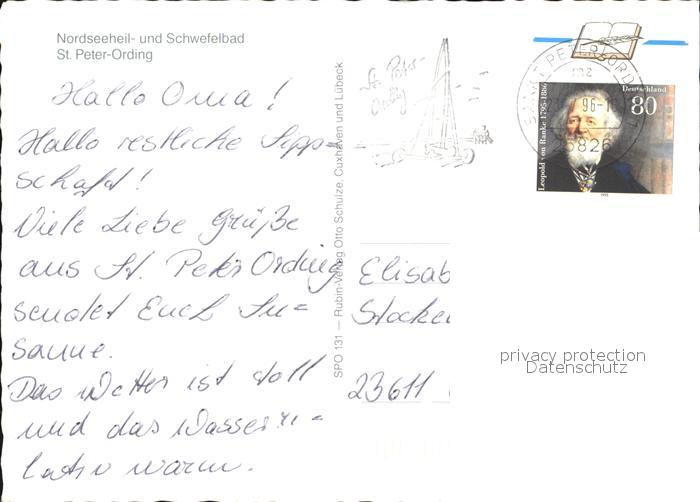 Nordseeheil- und Schwefelbad
St. Peter-Ording
Hallo Oma!
Hallo restliche Sipp=
schaft!
Viele Liebe Grüße
aus St. Peter Ording
sendet Euch Su=
sanne.
Das Wetter ist toll
und das Wasser re-
lativ warm.
SPO 131 — Rubin-Verlag Otto Schulze, Cuxhaven und Lübeck
St. Peter-
Ording
SANKT PETER-ORDING
96-1
25826
Deutschland
80
Leopold von Ranke 1795-1886
1995
Elisab
Stocke
23611
privacy protection
Datenschutz